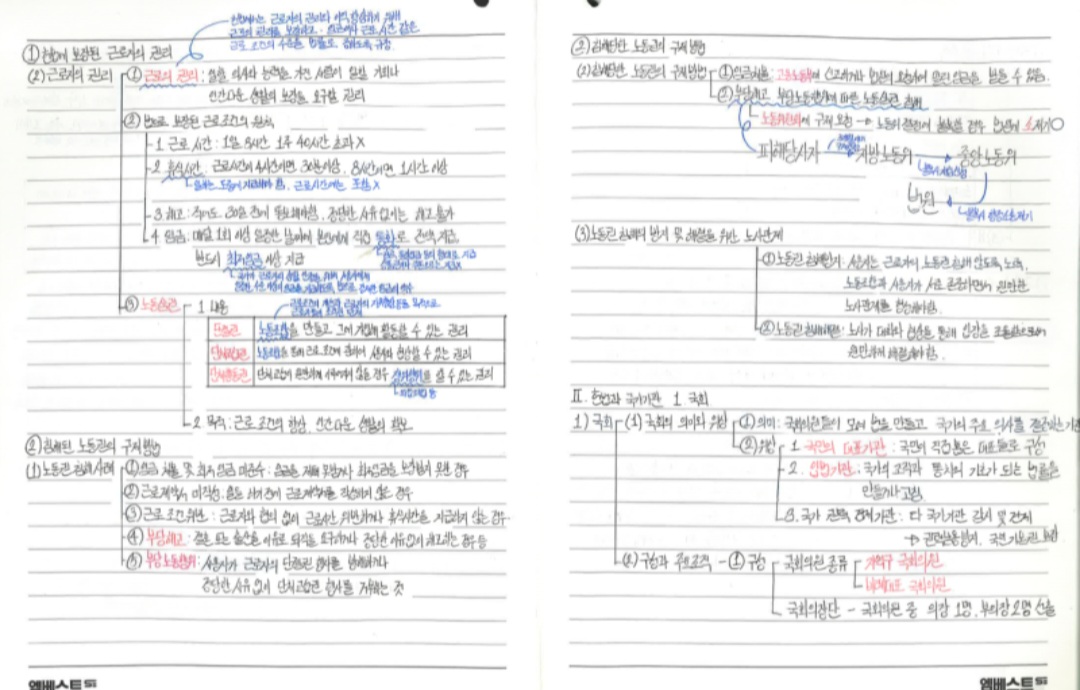 헌법에서는 근로자의 권리가 침해
근로의 권리를 보장하고, 임금이나 근로 시간 같은
근로 조건의 기준을 법률로 정하도록 규정.
① 헌법에 보장된 근로자의 권리
(2) 근로자의 권리
① 근로의 권리 : 일할 의사와 능력을 가진 사람이 일할 기회나
인간다운 생활의 보장을 요구할 권리
② 법으로 보장된 근로조건의 원칙
1 근로 시간 : 1일 8시간 1주 40시간 초과 X
2 휴식시간 : 근로시간이 4시간이면 30분이상, 8시간이면 1시간 이상
근로시간에는 포함 X
3 해고 : 적어도 30일 전에 통보해야함, 정당한 사유 없이는 해고 불가
4 임금 : 매월 1회 이상 일정한 날짜에 본인에게 직접 통화로 전액 지급.
반드시 최저임금 이상 지급
③ 노동삼권
1 내용
단결권 노동조합을 만들고 그에 가입해 활동할 수 있는 권리
단체교섭권 노동조합을 통해 근로 조건에 관하여 사용자와 협상할 수 있는 권리
단체행동권 단체교섭이 원만하게 이루어지지 않을 경우 쟁의행위를 할 수 있는 권리
2 목적 : 근로 조건의 향상, 인간다운 생활의 확보
② 침해된 노동권의 구제방법
(1) 노동권 침해 사례
① 임금 체불 및 최저 임금 미준수 : 임금을 제때 못받거나 최저임금을 보장받지 못한 경우
② 근로계약서 미작성 : 일을 시작전에 근로계약서를 작성하지 않은 경우
③ 근로 조건 위반 : 근로자와 합의 없이 근로시간 위반하거나 휴식시간을 지급하지 않는 경우
④ 부당해고 : 결혼 또는 출산을 이유로 퇴직을 요구하거나 정당한 사유없이 해고되는 경우 등
⑤ 부당노동행위 : 사용자가 근로자의 단결권 행사를 방해하거나
정당한 사유 없이 단체교섭권 행사를 거부하는 것
엠베스트SE
② 침해된 노동권의 구제방법
(2) 침해된 노동권의 구제 방법
① 임금체불 : 고용노동부에 신고하거나 법원의 소송하여 밀린 임금을 받을 수 있음.
② 부당해고, 부당노동행위에 따른 노동삼권 침해
노동위원회에 구제 요청 → 노동위 결정에 불복할 경우 법원에 소 제기 O
피해당사자 → 지방노동위 → 중앙노동위
법원
(3) 노동권 침해의 방지 및 해결을 위한 노사관계
① 노동권 침해방지 : 사용자는 근로자의 노동권 침해 않도록 노력,
노동조합과 사용자가 서로 존중하면서 원만한
노사관계를 형성해야함.
② 노동권 침해해결 : 노사가 대화와 협상을 통해 입장을 조율함으로써
원만하게 해결해야함.
II. 헌법과 국가기관 1 국회
1) 국회
(1) 국회의 의미와 위상
① 의미 : 국회의원들이 모여 법을 만들고 국가의 주요 의사를 결정하는 기관
② 위상
1. 국민의 대표기관 : 국민이 직접 뽑은 대표들로 구성
2. 입법기관 : 국가의 조직과 통치의 기초가 되는 법률을
만들거나 고침.
3. 국가 권력 견제기관 : 다 국가기관 감시 및 견제
→ 권력남용방지, 국민 기본권 보장
(2) 구성과 주요조직 - ① 구성
국회의원 종류
지역구 국회의원
비례대표 국회의원
국회의장단 - 국회의원 중 의장 1명, 부의장 2명 선출
엠베스트SE